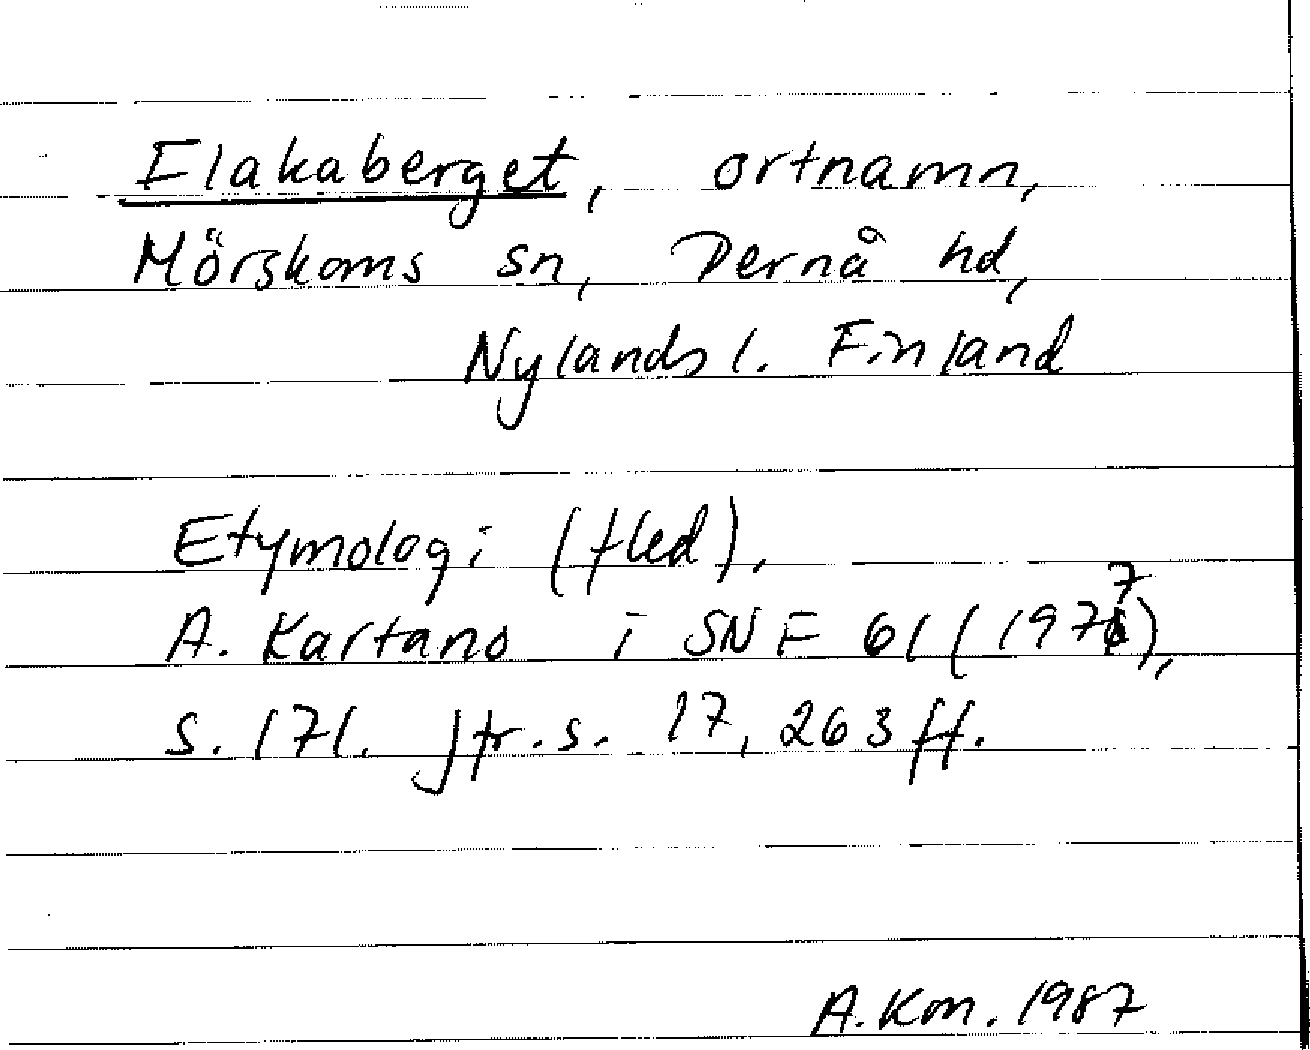 Elakaberget, ortnamn,
Mörskoms sn, Pernå hd,
Nylands l. Finland
Etymologi (fled),
A. Kartano i SNF 61 (1977),
s. 171. Jfr. s. 17, 263 ff.
A. Km. 1987